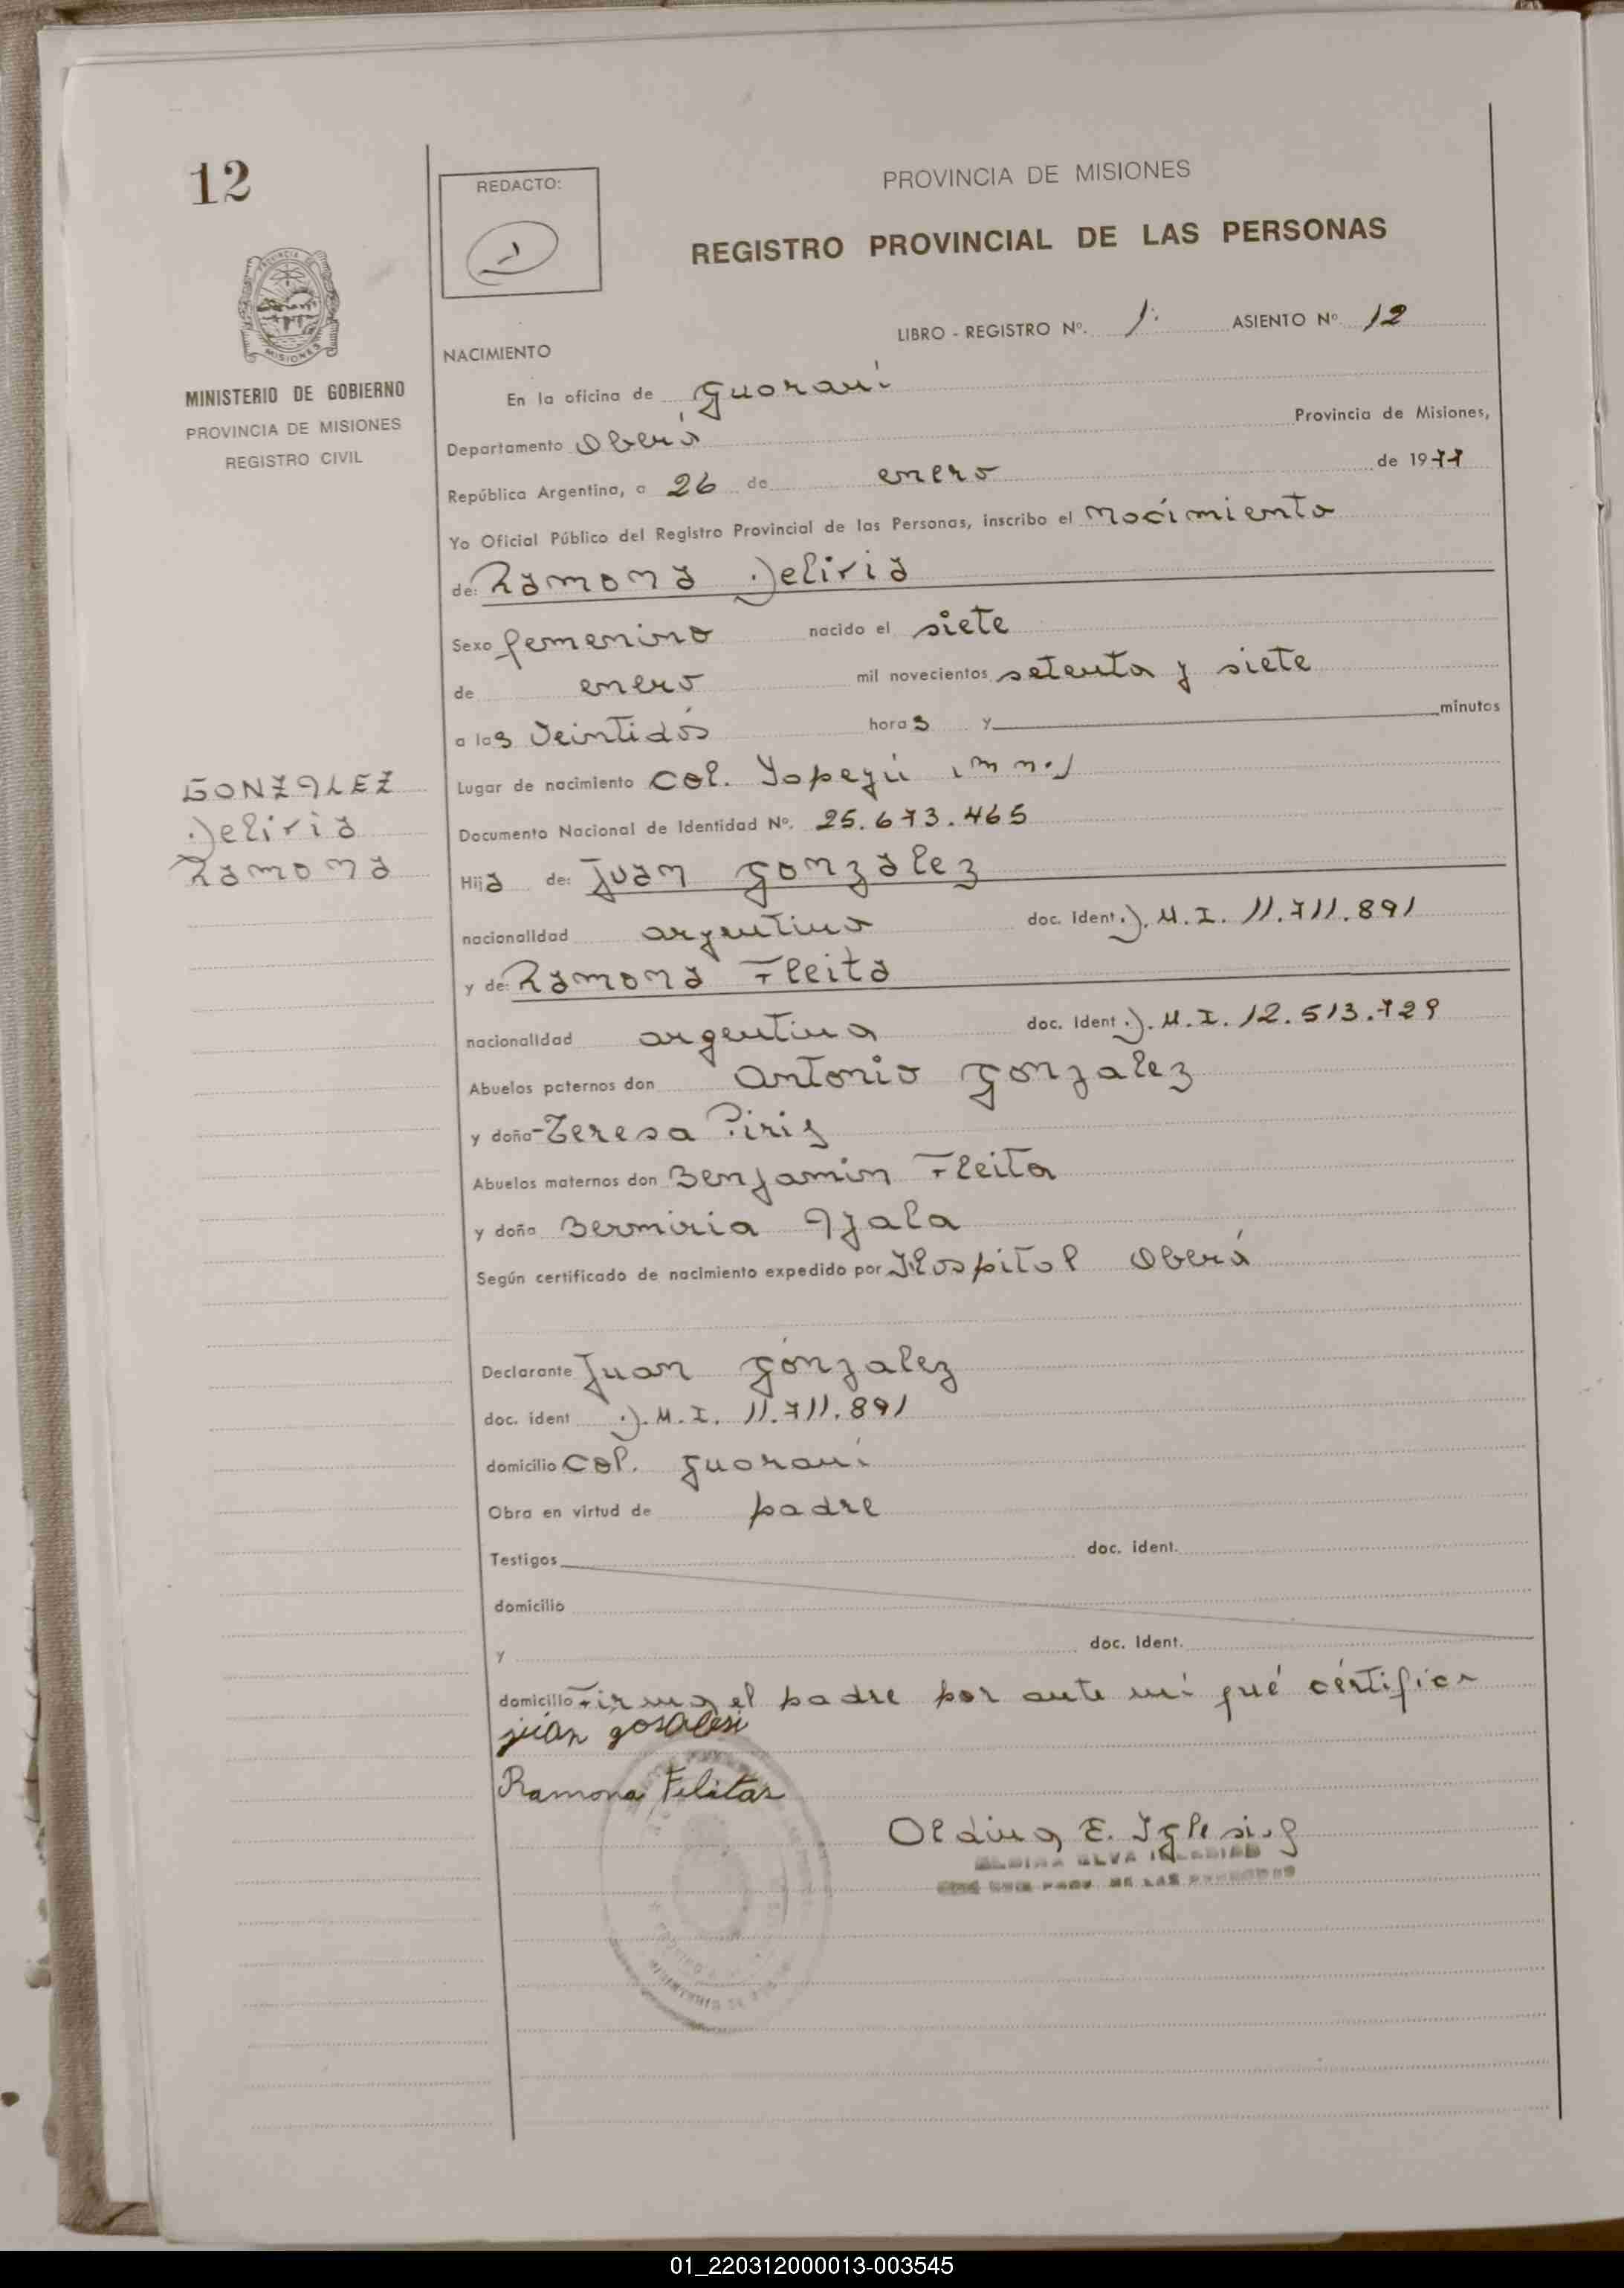 12
REDACTO:
PROVINCIA DE MISIONES
REGISTRO PROVINCIAL DE LAS PERSONAS
LIBRO - REGISTRO Nº. 1º ASIENTO Nº 12
MINISTERIO DE GOBIERNO
PROVINCIA DE MISIONES
REGISTRO CIVIL
NACIMIENTO
En la oficina de Guaraní
Departamento Oberá Provincia de Misiones,
República Argentina, a 26 de enero de 1977
Yo Oficial Público del Registro Provincial de las Personas, inscribo el nacimiento
de: Ramona Deliria
Sexo femenino nacido el siete
de enero mil novecientos setenta y siete
a las veintidós horas y minutos
Lugar de nacimiento Col. Yapeyú
Documento Nacional de Identidad Nº. 25.673.465
GONZALEZ
Deliria
Ramona
Hija de: Juan Gonzalez
nacionalidad argentino doc. ident. D.N.I. 11.711.891
y de: Ramona Fleita
nacionalidad argentina doc. ident. D.N.I. 12.513.729
Abuelos paternos don Antonio Gonzalez
y doña Teresa Piris
Abuelos maternos don Benjamin Fleita
y doña Bermiria Ayala
Según certificado de nacimiento expedido por Hospital Oberá
Declarante Juan Gonzalez
doc. ident D.N.I. 11.711.891
domicilio Col. Guaraní
Obra en virtud de padre
Testigos doc. ident.
domicilio
y doc. ident.
domicilio Firma el padre por ante mí qué certifica
juan gosalesi
Ramona Felitas
Oldina E. Iglesias
01_220312000013-003545